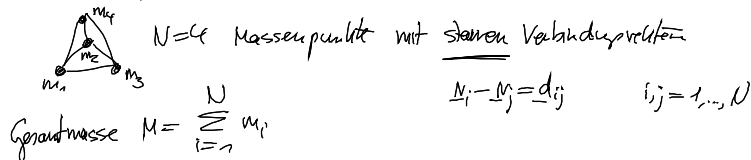 m₄
N=4 Massenpunkte mit starren Verbindungsvektoren
m₂
m₁ m₃
r_i - r_j = d_ij i,j = 1,..., N
Gesamtmasse M = ∑_{i=1}^{N} m_i